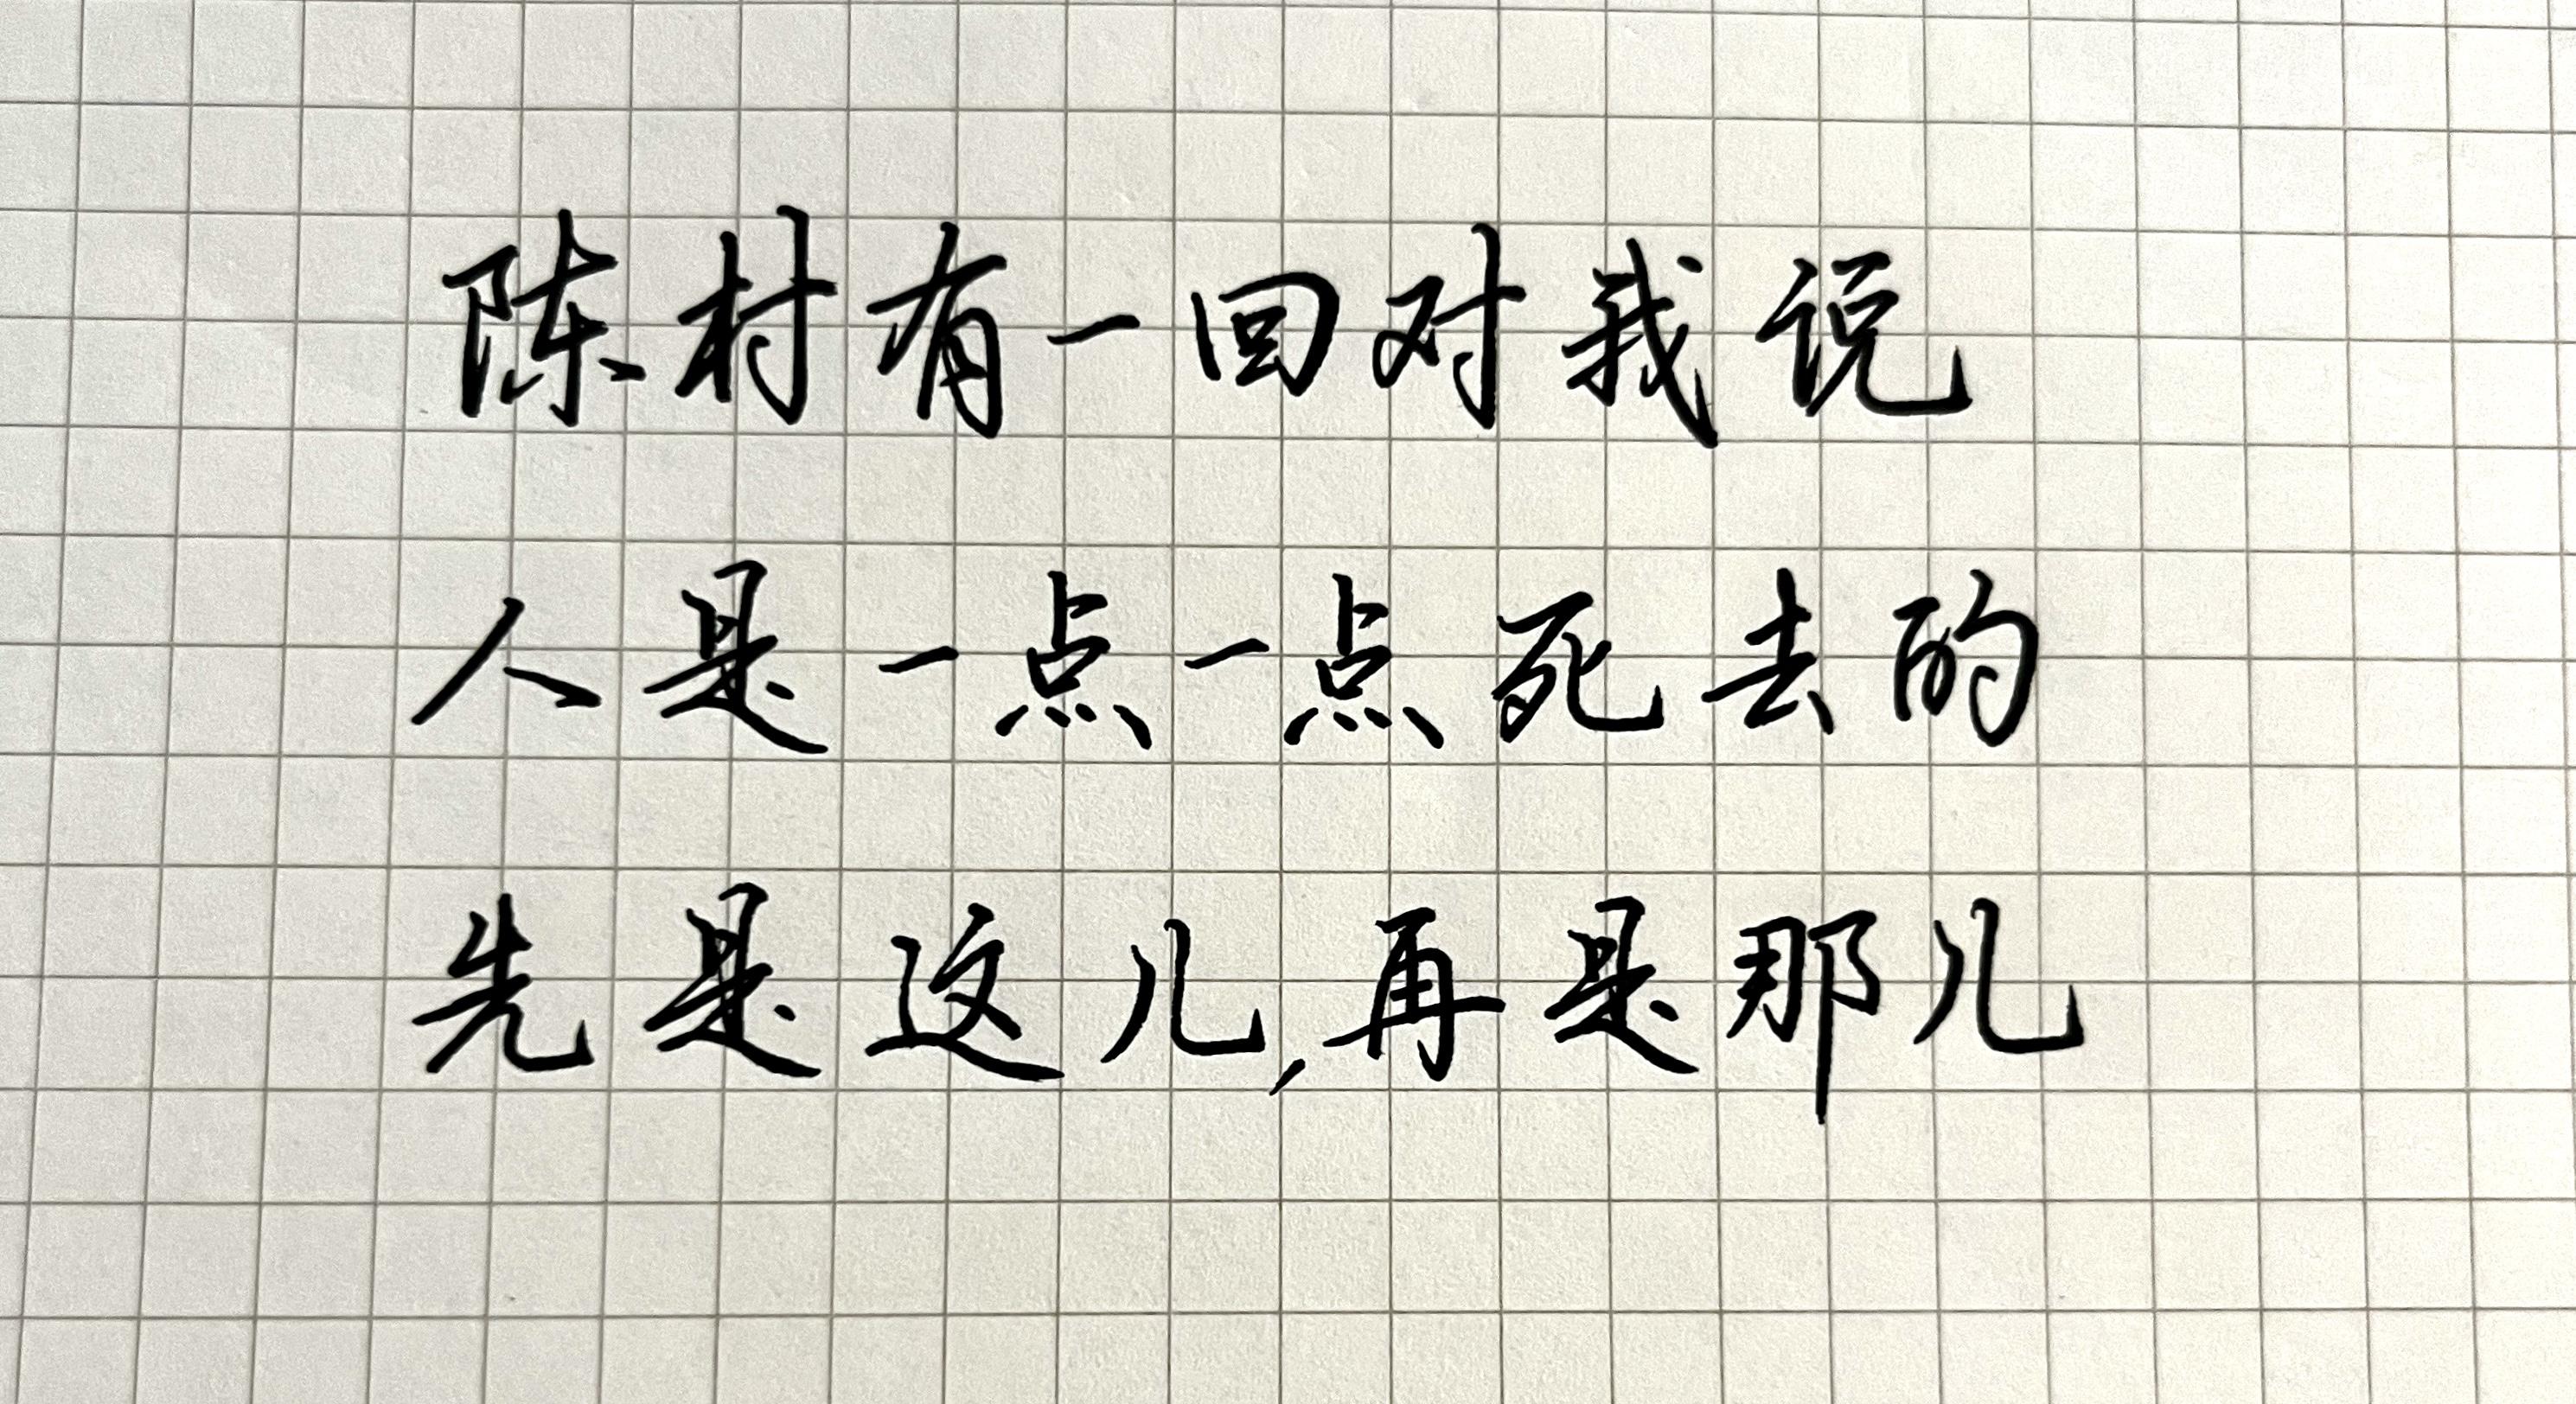 陈村有一回对我说
人是一点一点死去的
先是这儿,再是那儿